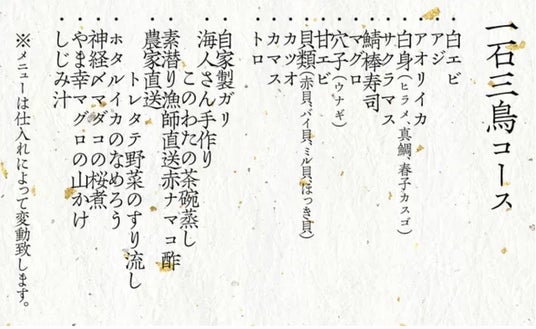 一石三鳥コース
・白エビ
・アジ
・アオリイカ
・白身(ヒラメ、真鯛、春子カスゴ)
・サクラマス
・鯖棒寿司
・マグロ
・穴子(ウナギ)
・甘エビ
・貝類(赤貝、バイ貝、ミル貝、ほっき貝)
・カツオ
・カマス
・トロ
・自家製ガリ
・海人さん手作り
このわたの茶碗蒸し
・素潜り漁師直送赤ナマコ酢
・農家直送
トレタテ野菜のすり流し
・ホタルイカのなめろう
・神経〆マダコの桜煮
・やま幸マグロの山かけ
・しじみ汁
※メニューは仕入れによって変動致します。